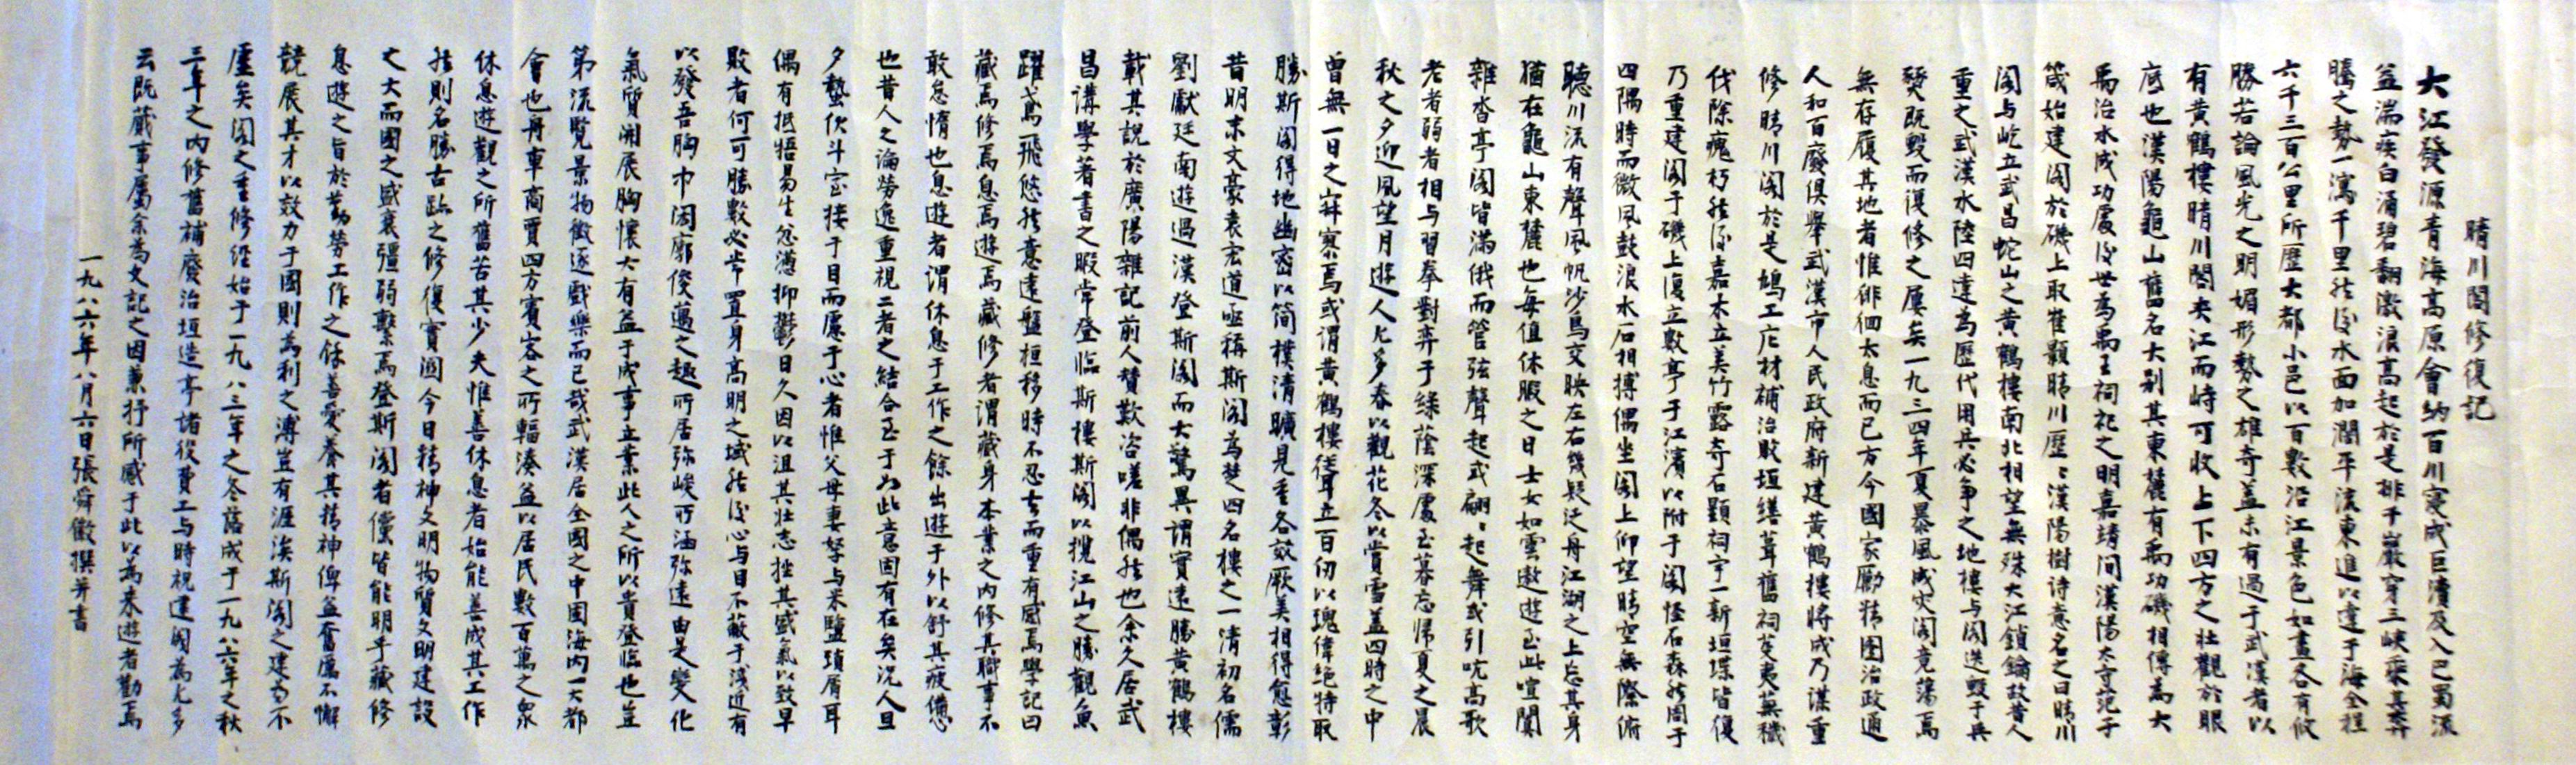 晴川閣修復記
大江發源青海高原會納百川寔成巨瀆及入巴蜀流
益湍疾白涌碧翻激浪高起於是排千巖穿三峽乘其奔
騰之勢一瀉千里然後水面加闊平流東進以達于海全程
六千三百公里所歷大都小邑以百數沿江景色如畫各有攸
勝若論風光之明媚形勢之雄奇盖未有過于武漢者以
有黃鶴樓晴川閣夾江而峙可收上下四方之壯觀於眼
底也漢陽龜山舊名大别其東麓有禹功磯相傳為大
禹治水成功處後世為禹王祠祀之明嘉靖间漢陽太守范于
箴始建阁於磯上取崔顥晴川歷〻漢陽樹诗意名之曰晴川
阁与屹立武昌蛇山之黄鶴樓南北相望無殊大江鎖鑰故昔人
重之武漢水陸四達為歷代用兵必争之地樓与阁迭毁于兵
燹既毁而復修之屢矣一九三四年夏暴風成灾阁竟蕩焉
無存履其地者惟徘徊太息而已方今國家勵精图治政通
人和百廢俱舉武漢市人民政府新建黄鶴樓將成乃谋重
修晴川阁於是鳩工庀材補治敗垣繕葺舊祠芟夷蕪穢
伐除瘣朽然後嘉木立美竹露奇石顯祠宇一新垣堞皆復
乃重建阁于磯上復立數亭于江濱以附于阁怪石森然周于
四隅時而微風鼓浪水石相搏偶坐阁上仰望晴空無際俯
聽川流有聲風帆沙鳥交映左右幾疑泛舟江湖之上忘其身
猶在龜山東麓也每值休暇之日士女如雲遨遊至此喧闐
雜沓亭阁皆滿俄而管弦聲起或翩〻起舞或引吭高歌
老者弱者相与習拳對弈于綠蔭深處至暮忘帰夏之晨
秋之夕迎風望月遊人尤多春以觀花冬以賞雪盖四時之中
曾無一日之寂寥焉或謂黄鶴樓聳立百仞以瑰偉絶特取
勝斯阁得地幽密以简樸清曠見重各效厥美相得愈彰
昔明末文豪袁宏道亟稱斯阁為楚四名樓之一清初名儒
劉獻廷南遊過漢登斯阁而大驚異謂實遠勝黄鶴樓
載其說於廣陽雜記前人贊歎咨嗟非偶然也余久居武
昌講學著書之暇常登臨斯樓斯阁以攬江山之勝觀魚
躍鳶飛悠然意遠盤桓移時不忍去而重有感焉學記曰
藏焉修焉息焉遊焉藏修者謂藏身本業之内修其職事不
敢怠惰也息遊者謂休息于工作之餘出遊于外以舒其疲憊
也昔人之論勞逸重視二者之結合至于如此意固有在矣況人旦
夕蟄伏斗室接于目而慮于心者惟父母妻孥与米鹽瑣屑耳
偶有抵牾易生忿懣抑鬱日久因以沮其壯志挫其盛氣以致早
敗者何可勝數必常置身高明之域然後心与目不蔽于淺近有
以發吾胸中闳廓俊邁之趣所居弥峻所涵弥遠由是變化
氣質開展胸懷大有益于成事立業此人之所以貴登臨也豈
第流覽景物徵逐戲樂而已哉武漢居全國之中固海内一大都
會也舟車商賈四方賓客之所輻湊益以居民數百萬之衆
休息遊觀之所舊苦其少夫惟善休息者始能善成其工作
然則名勝古跡之修復實闓今日精神文明物質文明建設
之大而國之盛衰彊弱繫焉登斯阁者儻皆能明乎藏修
息遊之旨於勤勞工作之餘善愛養其精神俾益奮厲不懈
競展其才以效力于國則為利之溥豈有涯涘斯阁之建為不
虛矣阁之重修經始于一九八三年之冬落成于一九八六年之秋
三年之内修舊補廢治垣造亭諸役費工与時視建阁為尤多
云既蕆事屬余為文記之因兼抒所感于此以為来遊者勸焉
一九八六年八月六日張舜徽撰并書